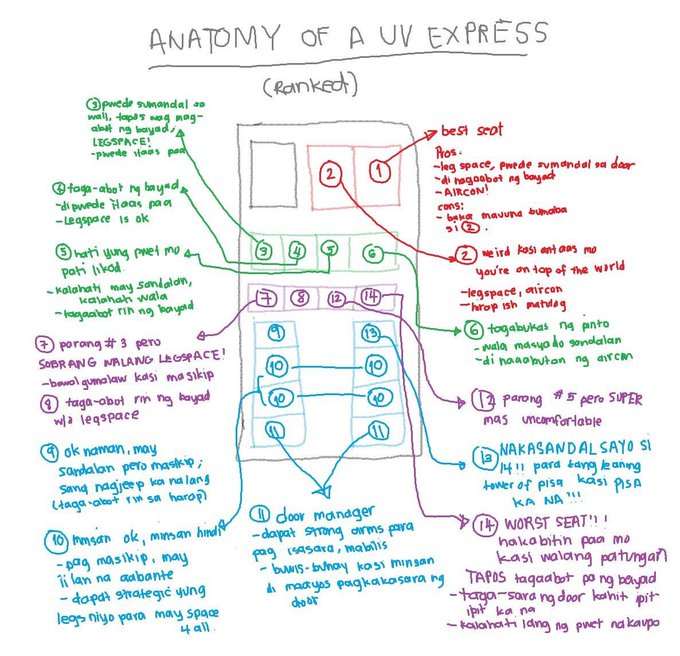 ANATOMY OF A UV EXPRESS
(Ranked)
③ pwede sumandal sa
wall, tapos wag mag-
abot ng bayad,
LEGSPACE!
- pwede itaas paa
④ taga-abot ng bayad
- di pwede itaas paa
- Legspace is ok
⑤ hati yung pwet mo
pati likod.
- kalahati may sandalan,
kalahati wala
- tagaabot rin ng bayad
⑦ parang #3 pero
SOBRANG WALANG LEGSPACE!
- bawal gumalaw kasi masikip
⑧ taga-abot rin ng bayad
w/o legspace
⑨ ok naman, may
sandalan pero masikip,
sana nagjeep ka nalang
(taga-abot rin sa harap)
⑩ minsan ok, minsan hindi
- pag masikip, may
iilan na aabante
- dapat strategic yung
legs niyo para may space
4 all.
② ①
③ ④ ⑤ ⑥
⑦ ⑧ ⑫ ⑭
⑨ ⑬
⑩ ⑩
⑩ ⑩
⑪ ⑪
⑪ door manager
- dapat strong arms para
pag isasara, mabilis
- buwis-buhay kasi minsan
di maayos pagkakasara ng
door
best seat
Pros:
- leg space, pwede sumandal sa door
- di nagaabot ng bayad
- AIRCON!
cons:
- baka maunna bumaba
si ②.
② weird kasi antaas mo
you're on top of the world
- legspace, aircon
- hirap ish matulog
⑥ tagabukas ng pinto
- wala masyado sandalan
- di naaabutan ng aircon
⑫ parang #5 pero SUPER
mas uncomfortable
⑬ NAKASANDAL SAYO SI
14!! para tang leaning
tower of pisa kasi PISA
KA NA!!!
⑭ WORST SEAT!!!
nakabitin paa mo
kasi walang patungan
TAPOS tagaabot pa ng bayad
- taga-sara ng door kahit ipit
ipit ka na
- kalahati lang ng pwet nakaupo